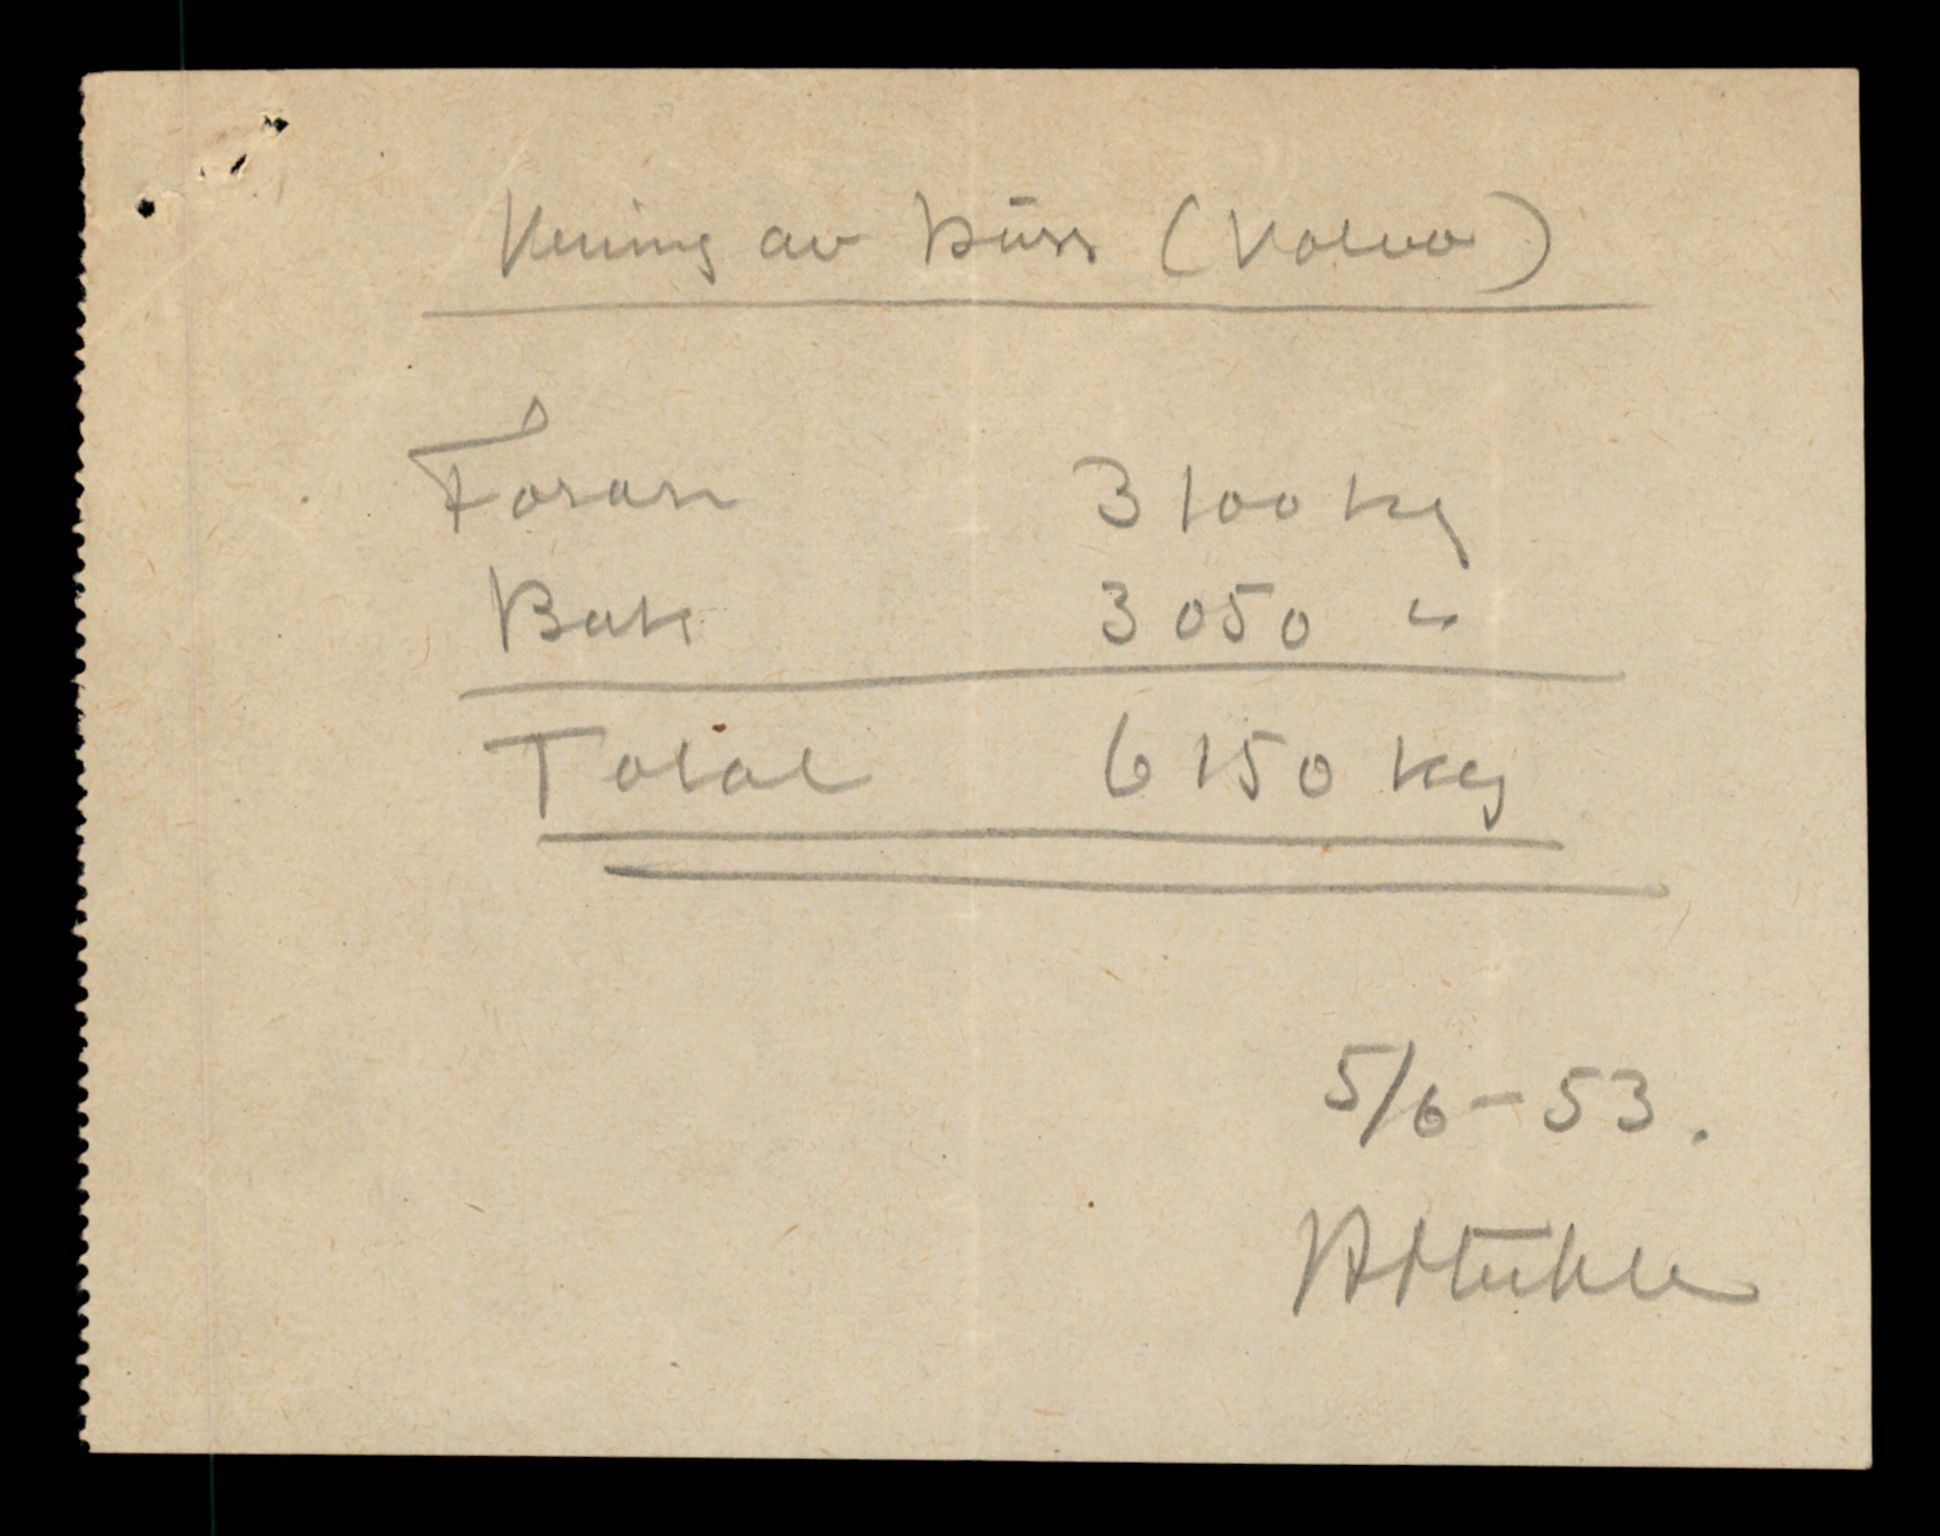 Veiing av Buss (Volvo)
Foran 3100 kg
Bak 3050 "
Total 6150 kg
5/6-53.